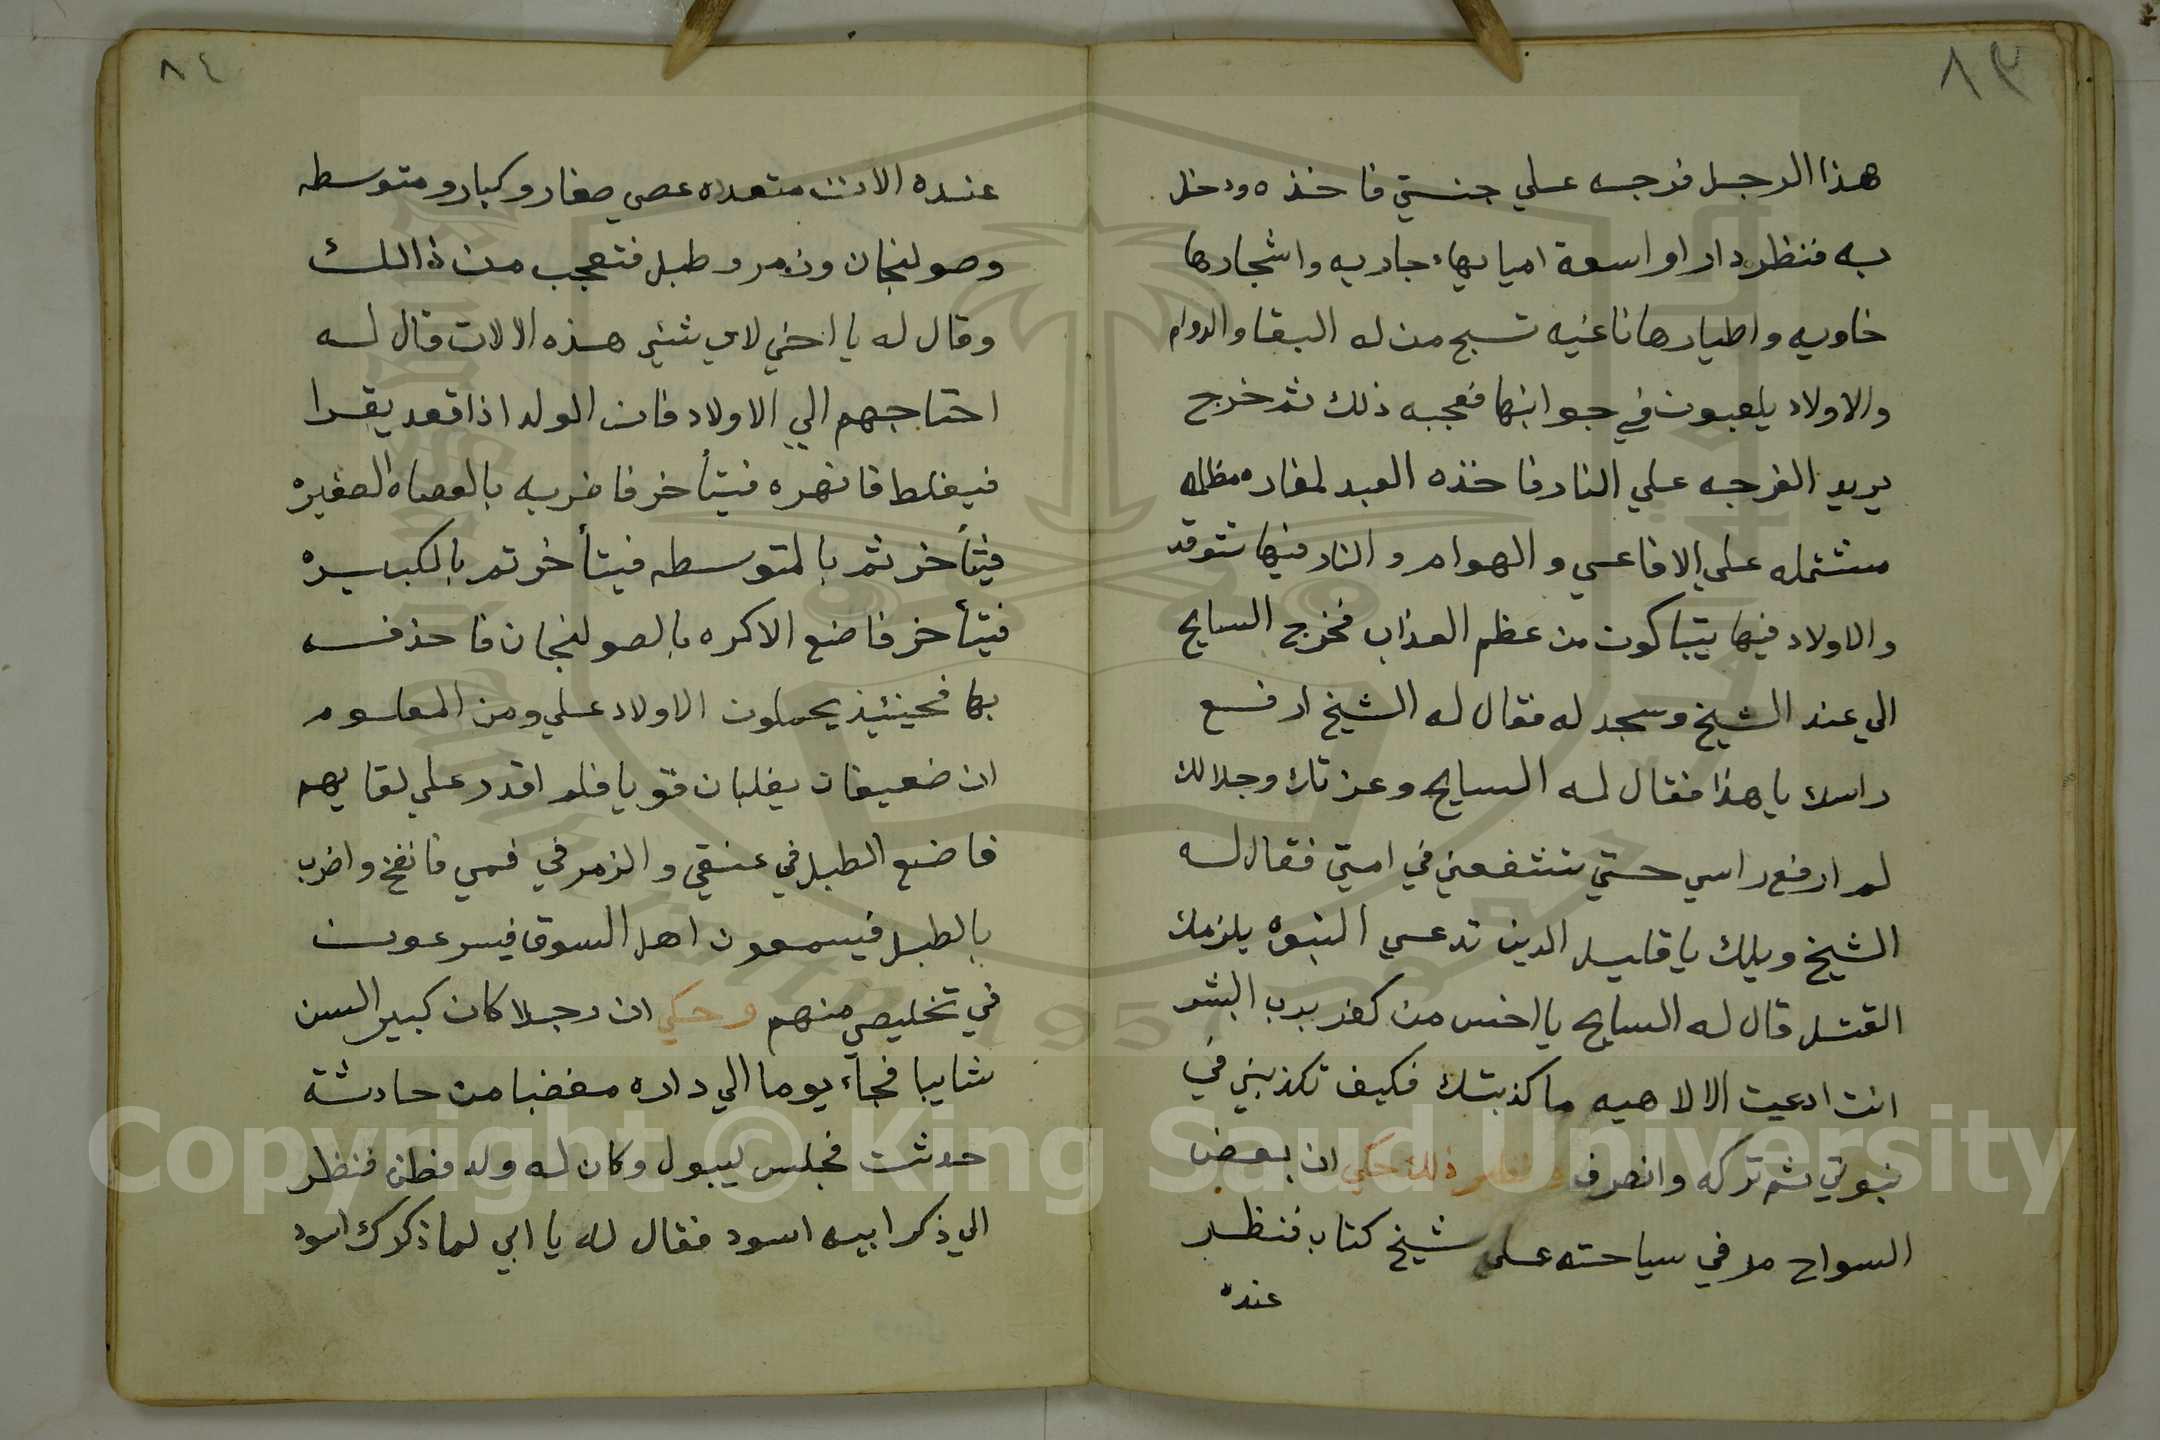 ٨٣
هذا الرجل فرجه علي جنتي فاخذه ودخل
به فنظر دارا واسعة امياهها جاريه واشجارها
خاويه واطيارها ناغيه تسبح من له البقا والدوام
والاولاد يلعبون في جوانبها فعجبه ذلك ثم خرج
يريد الفرجه علي النار فاخذه العبد لمغاره مظلمه
مشتمله علي الافاعي والهوام والنار فيها تتوقد
والاولاد فيها يتباكون من عظم العذاب فخرج السايح
الي عند الشيخ وسجد له فقال له الشيخ ارفع
راسك يا هذا فقال له السايح وعزتك وجلالك
لم ارفع راسي حتي تشفعني في امتي فقال له
الشيخ ويلك يا قليل الدين تدعي النبوه يلزمك
القتل قال له السايح يا اخس من كفر برب البشر
انت ادعيت الالاهيه ما كذبتك فكيف تكذبني في
نبوتي ثم تركه وانصرف ذلك حكي ان بعض
السواح مر في سياحته علي شيخ كتاب فنظر
عنده
٨٤
عنده الات متعدده عصي صغار وكبار ومتوسطه
وصولنجان وزمر وطبل فتعجب من ذالك
وقال له يا اخي لاي شئي هذه الالات قال له
احتاجهم الي الاولاد فان الولد اذا قعد يقرا
فيغلط فانهره فيتأخر فاضربه بالعصاه الصغيره
فيتأخر ثم بالمتوسطه فيتأخر ثم بالكبيره
فيتأخر فاضع الاكره بالصولنجان فاحذفه
بها فحينيئذ يحملون الاولاد علي ومن المعلوم
ان ضعيفان يغلبان قويا فلم اقدر علي لقايهم
فاضع الطبل في عنقي والزمر في فمي فانفخ واضرب
بالطبل فيسمعون اهل السوق فيسرعون
في تخليصي منهم وحكي ان رجلا كان كبير السن
شايبا فجاء يوما الي داره مغضبا من حادثة
حدثت فجلس ليبول وكان له ولد فطن فنظر
الي ذكر ابيه اسود فقال له يا ابي لما ذكرك اسود
Copyright © King Saud University
1957